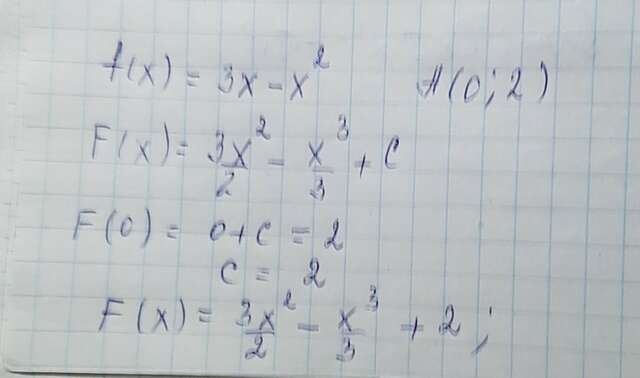 f(x) = 3x - x² A(0;2)
F(x) = 3x²/2 - x³/3 + C
F(0) = 0+C = 2
C = 2
F(x) = 3x²/2 - x³/3 + 2;